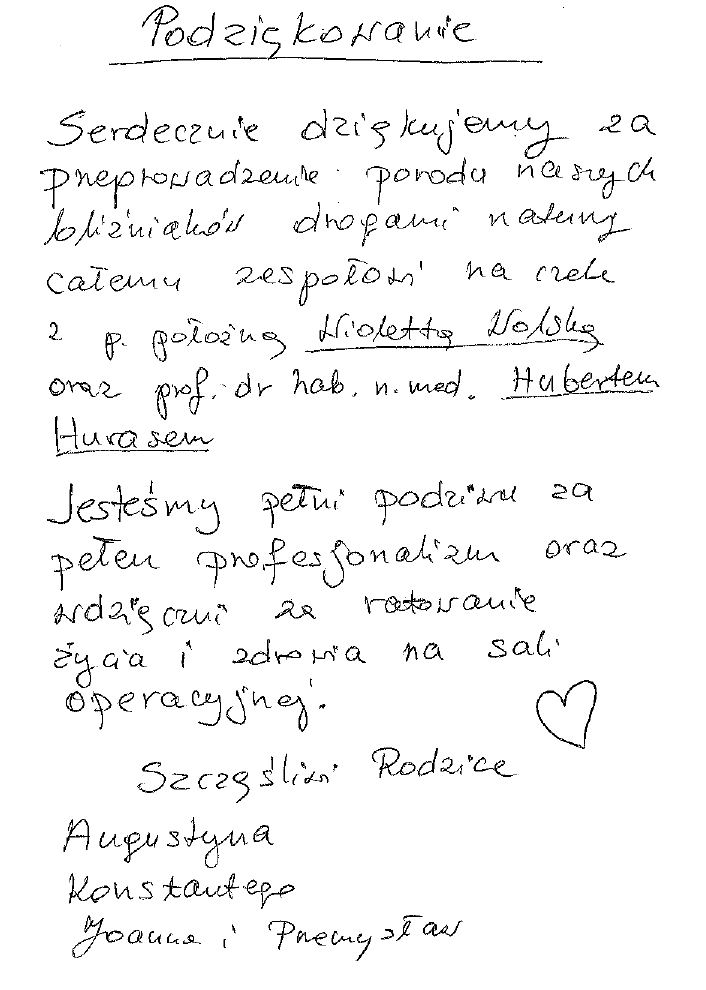 Podziękowanie
Serdecznie dziękujemy za
przeprowadzenie porodu naszych
bliźniaków drogami natury
całemu zespołowi na czele
z p. położną Violettą Wolską
oraz prof. dr hab. n. med. Hubertem
Hurasem
Jesteśmy pełni podziwu za
pełen profesjonalizm oraz
wdzięczni za ratowanie
życia i zdrowia na sali
operacyjnej.
Szczęśliwi Rodzice
Augustyna
Konstantego
Joanna i Przemysław